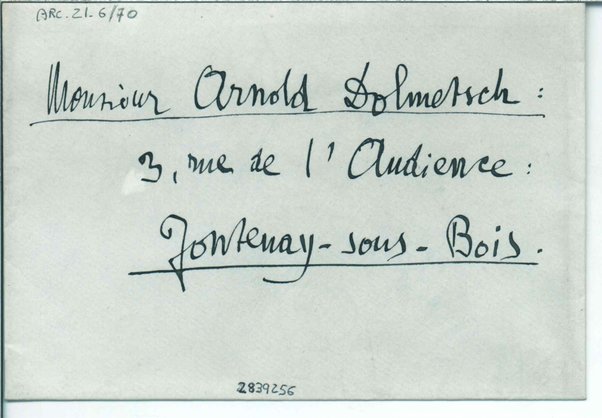 ARC. 21.6/70
Monsieur Arnold Dolmetsch :
3, rue de l' Audience :
Fontenay-sous-Bois.
2839256